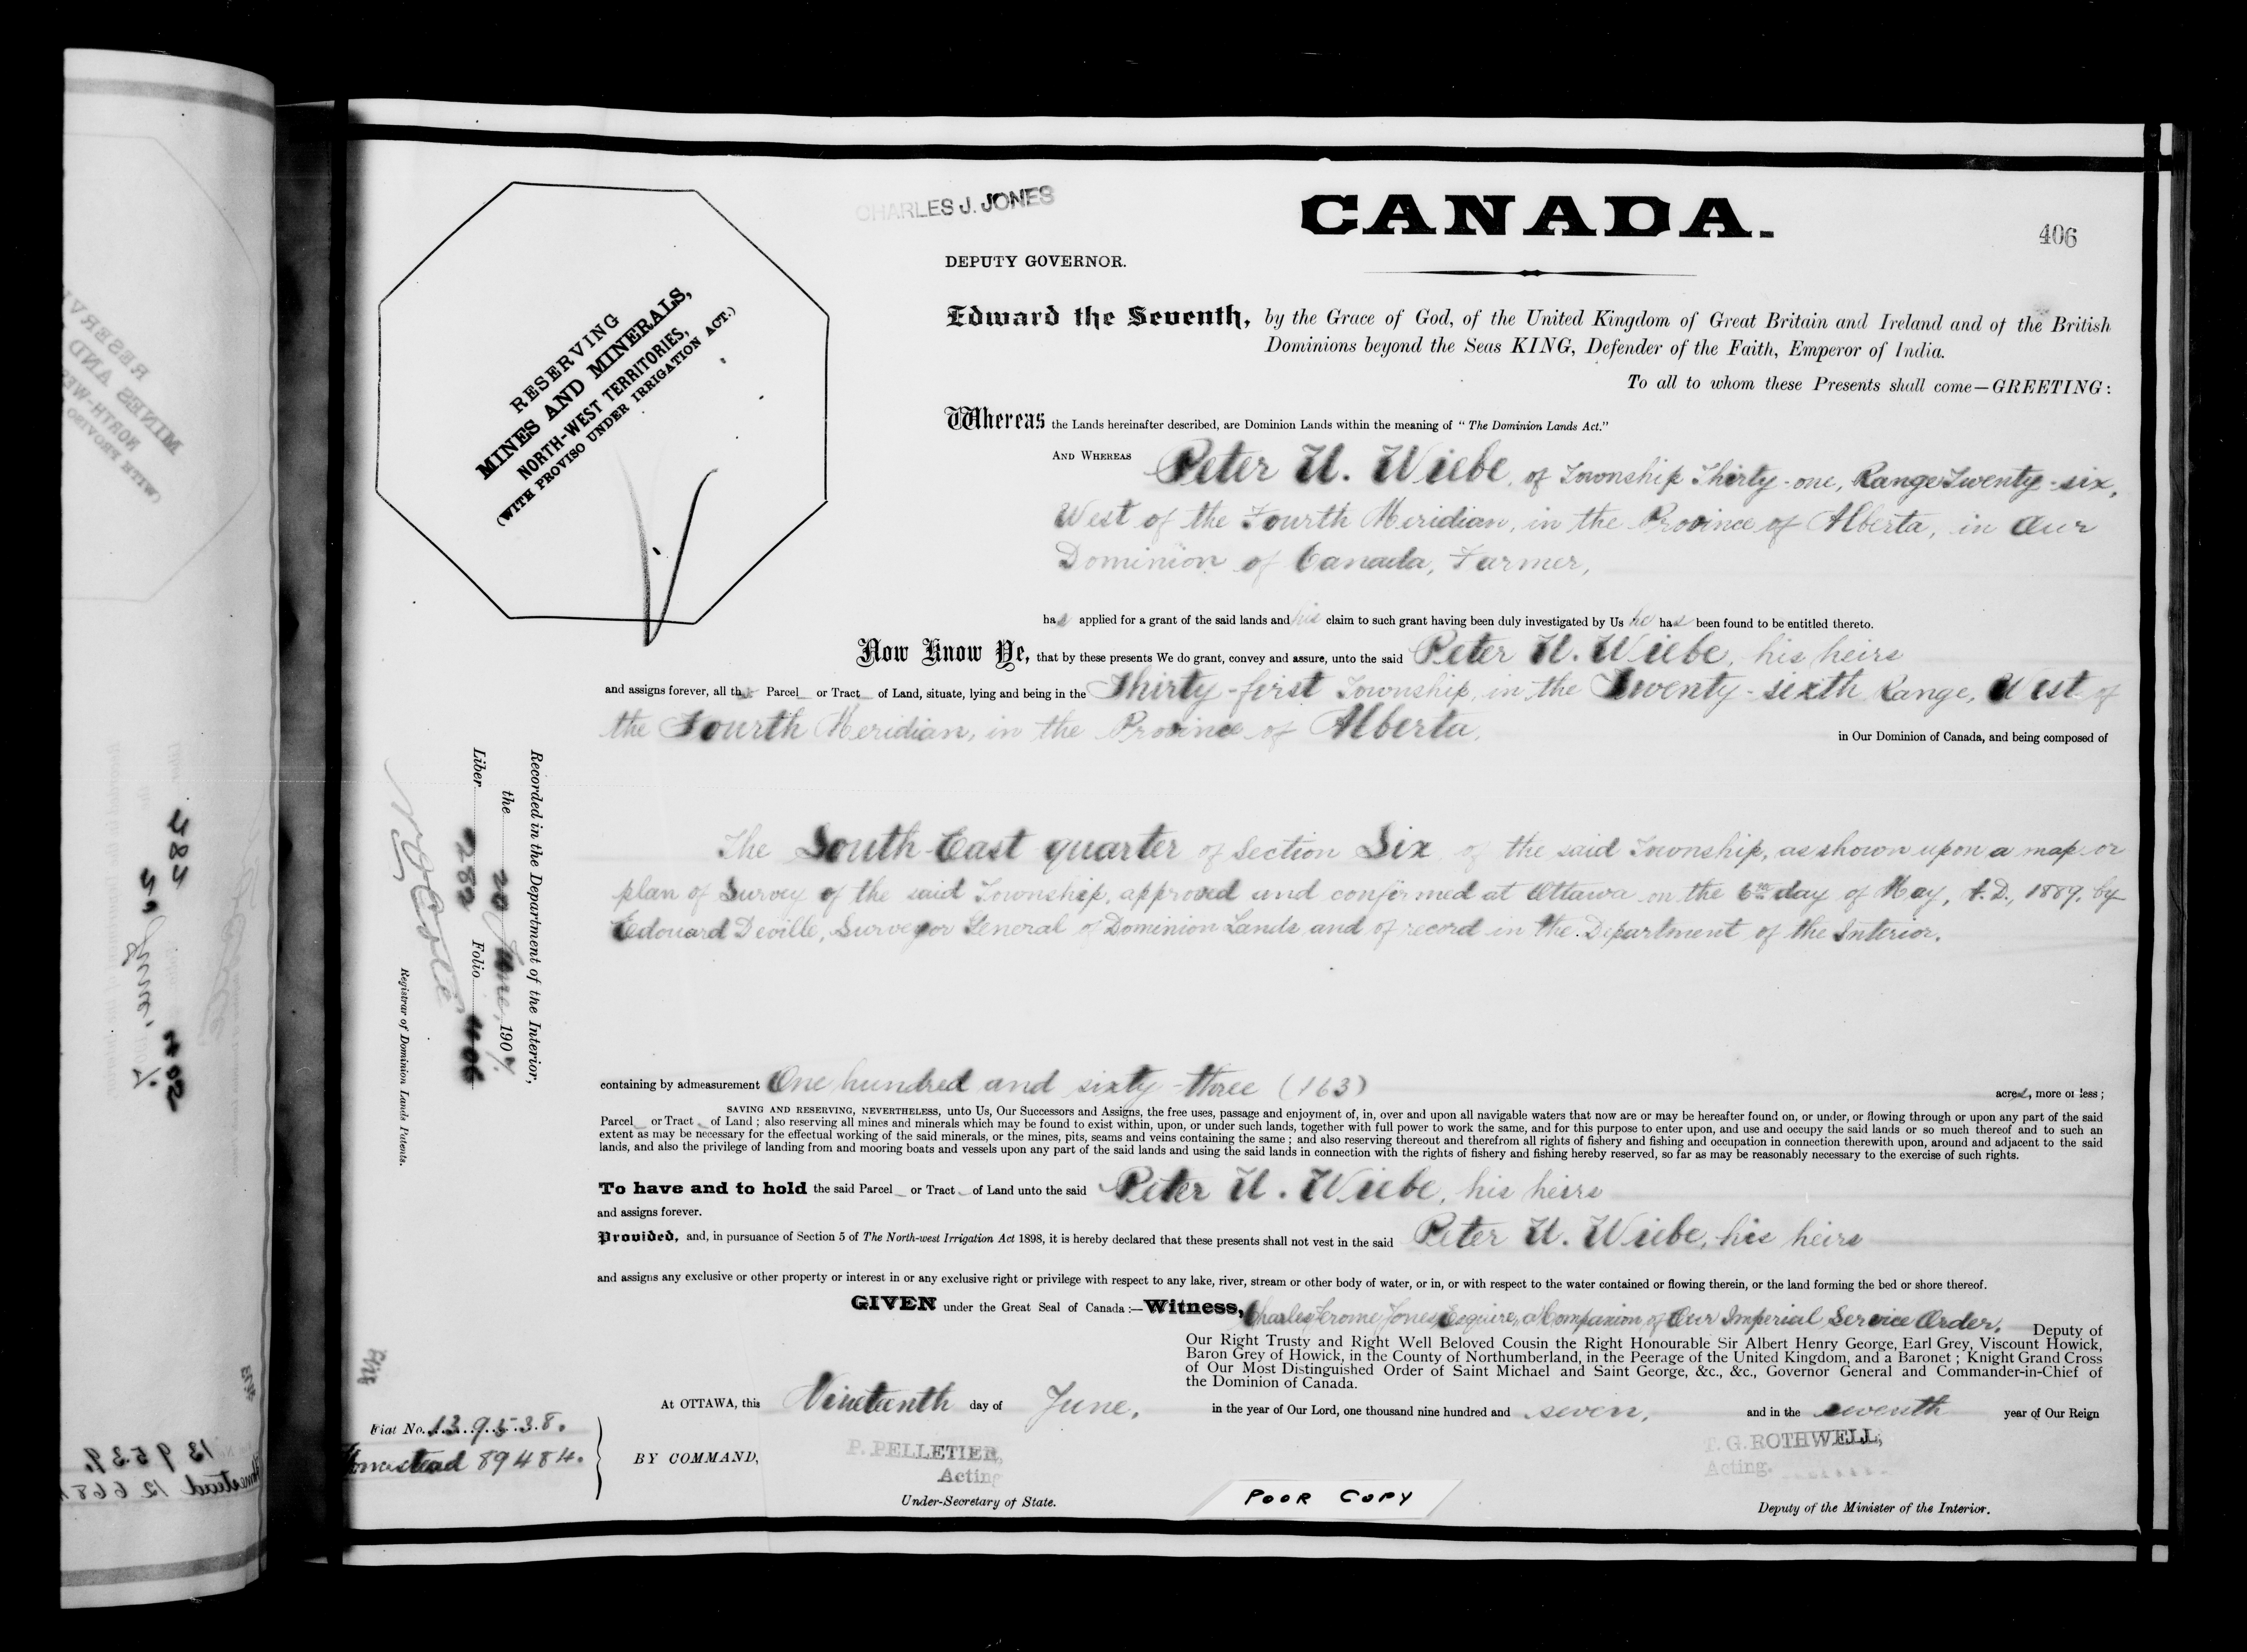 CHARLES J. JONES
CANADA.
406
DEPUTY GOVERNOR.
RESERVING
MINES AND MINERALS,
NORTH-WEST TERRITORIES,
(WITH PROVISO UNDER IRRIGATION ACT.)
Edward the Seventh, by the Grace of God, of the United Kingdom of Great Britain and Ireland and of the British
Dominions beyond the Seas KING, Defender of the Faith, Emperor of India.
To all to whom these Presents shall come—GREETING:
Whereas the Lands hereinafter described, are Dominion Lands within the meaning of "The Dominion Lands Act."
AND WHEREAS Peter U. Wiebe, of Township Thirty-one, Range Twenty-six,
West of the Fourth Meridian, in the Province of Alberta, in Our
Dominion of Canada, Farmer,
has applied for a grant of the said lands and his claim to such grant having been duly investigated by Us he has been found to be entitled thereto.
Now Know Ye, that by these presents We do grant, convey and assure, unto the said Peter U. Wiebe, his heirs
and assigns forever, all that Parcel or Tract of Land, situate, lying and being in the Thirty-first Township, in the Twenty-sixth Range, West of
the Fourth Meridian, in the Province of Alberta, in Our Dominion of Canada, and being composed of
The South East quarter of Section Six of the said Township, as shown upon a map or
plan of Survey of the said Township, approved and confirmed at Ottawa on the 6th day of May, A.D., 1889, by
Edouard Deville, Surveyor General of Dominion Lands and of record in the Department of the Interior.
Recorded in the Department of the Interior,
the 20 June, 1907.
Liber 282 Folio 406
Registrar of Dominion Lands Patents.
containing by admeasurement One hundred and sixty-three (163) acres, more or less;
SAVING AND RESERVING, NEVERTHELESS, unto Us, Our Successors and Assigns, the free uses, passage and enjoyment of, in, over and upon all navigable waters that now are or may be hereafter found on, or under, or flowing through or upon any part of the said
Parcel or Tract of Land; also reserving all mines and minerals which may be found to exist within, upon, or under such lands, together with full power to work the same, and for this purpose to enter upon, and use and occupy the said lands or so much thereof and to such an
extent as may be necessary for the effectual working of the said minerals, or the mines, pits, seams and veins containing the same; and also reserving thereout and therefrom all rights of fishery and fishing and occupation in connection therewith upon, around and adjacent to the said
lands, and also the privilege of landing from and mooring boats and vessels upon any part of the said lands and using the said lands in connection with the rights of fishery and fishing hereby reserved, so far as may be reasonably necessary to the exercise of such rights.
To have and to hold the said Parcel or Tract of Land unto the said Peter U. Wiebe, his heirs
and assigns forever.
Provided, and, in pursuance of Section 5 of The North-west Irrigation Act 1898, it is hereby declared that these presents shall not vest in the said Peter U. Wiebe, his heirs
and assigns any exclusive or other property or interest in or any exclusive right or privilege with respect to any lake, river, stream or other body of water, or in, or with respect to the water contained or flowing therein, or the land forming the bed or shore thereof.
GIVEN under the Great Seal of Canada:—Witness, Charles Jerome Jones, Esquire, a Companion of Our Imperial Service Order, Deputy of
Our Right Trusty and Right Well Beloved Cousin the Right Honourable Sir Albert Henry George, Earl Grey, Viscount Howick,
Baron Grey of Howick, in the County of Northumberland, in the Peerage of the United Kingdom, and a Baronet; Knight Grand Cross
of Our Most Distinguished Order of Saint Michael and Saint George, &c., &c., Governor General and Commander-in-Chief of
the Dominion of Canada.
At OTTAWA, this Nineteenth day of June, in the year of Our Lord, one thousand nine hundred and seven, and in the seventh year of Our Reign
Fiat No. 139538.
Homestead 89484.
BY COMMAND,
P. PELLETIER,
Acting
Under-Secretary of State.
POOR COPY
T. G. ROTHWELL,
Acting.
Deputy of the Minister of the Interior.